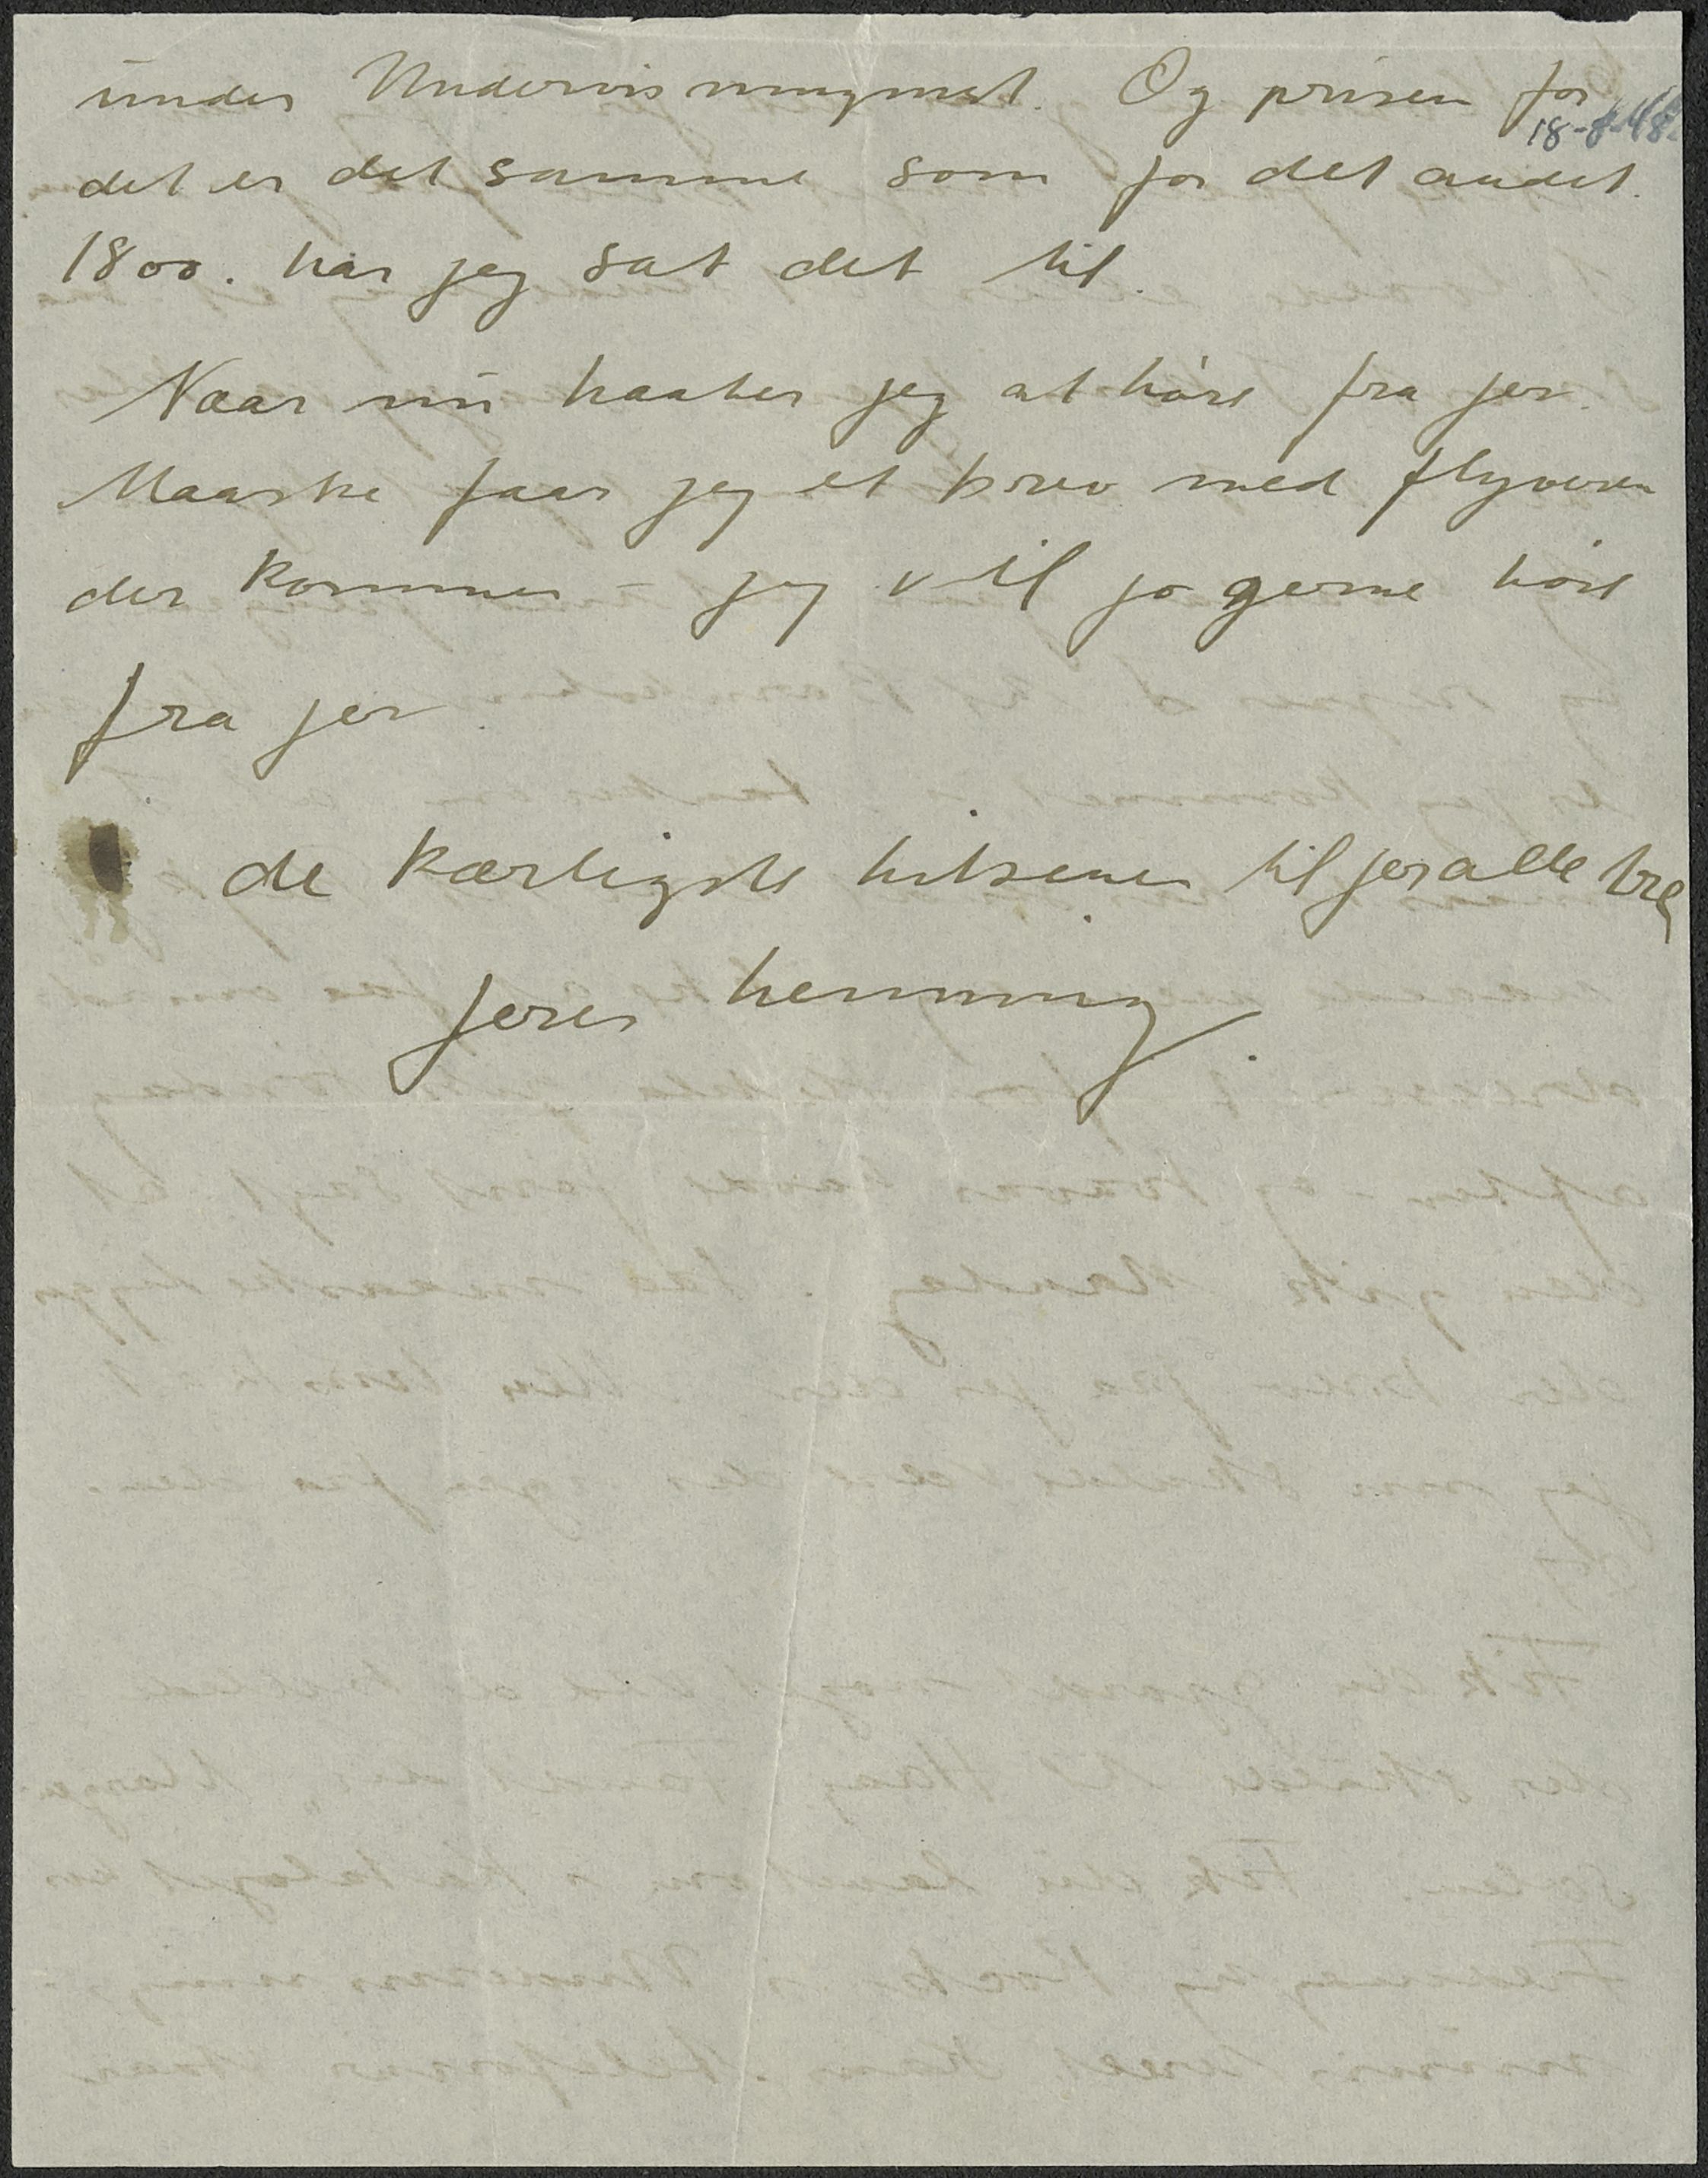 under Undervisningmst. Og prisen for
18-8-48.
det er det samme som for det andet.
1800. har jeg sat det til.
Naar nu haaber jeg at høre fra jer.
Maaske faar jeg et brev med flyveren
der kommer – jeg vil jo gerne høre
fra jer.
de kærligste hilsener til jer alle tre
Jeres henning.